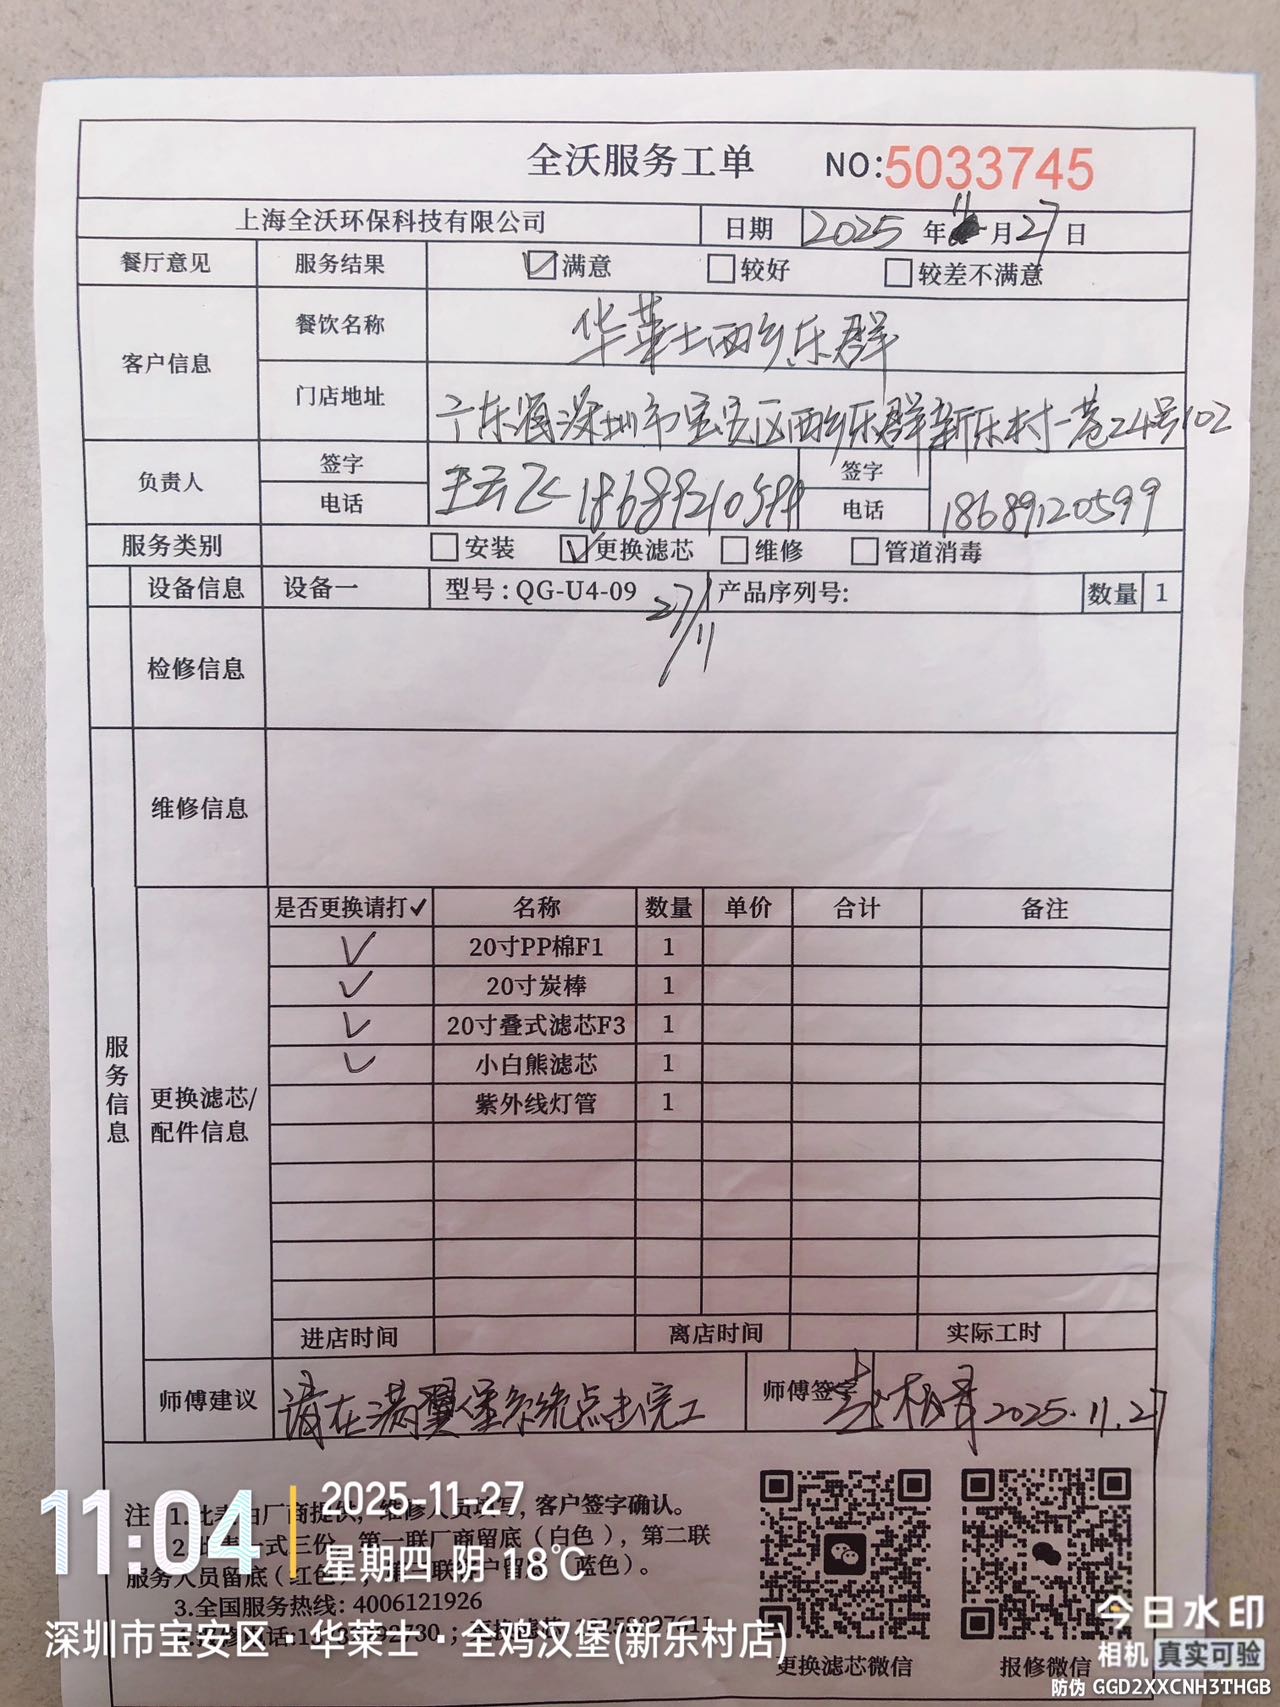 全沃服务工单 NO:5033745
上海全沃环保科技有限公司 日期 2025年11月27日
餐厅意见 服务结果 ☑满意 □较好 □较差不满意
客户信息 餐饮名称 华莱士西乡乐群
门店地址 广东省深圳市宝安区西乡乐群新乐村一巷24号102
负责人 签字 电话 王云飞 签字 电话 18689120599
服务类别 □安装 ☑更换滤芯 □维修 □管道消毒
设备信息 设备一 型号:QG-U4-09 产品序列号: 数量 1
27/11
检修信息
维修信息
服务信息
更换滤芯/配件信息
是否更换请打✓ 名称 数量 单价 合计 备注
✓ 20寸PP棉F1 1
✓ 20寸炭棒 1
✓ 20寸叠式滤芯F3 1
✓ 小白熊滤芯 1
紫外线灯管 1
进店时间 离店时间 实际工时
师傅建议 请在满翼堡系统点击完工 师傅签字 2025.11.27
注 1.此表由厂商提供,维修人员填写,客户签字确认。
2.一式三份,第一联厂商留底(白色),第二联
服务人员留底(红色),(蓝色)。
3.全国服务热线:4006121926
更换滤芯微信 报修微信
11:04 2025-11-27
星期四 阴 18℃
深圳市宝安区·华莱士·全鸡汉堡(新乐村店)
今日水印
相机 真实可验
防伪 GGD2XXCNH3THGB